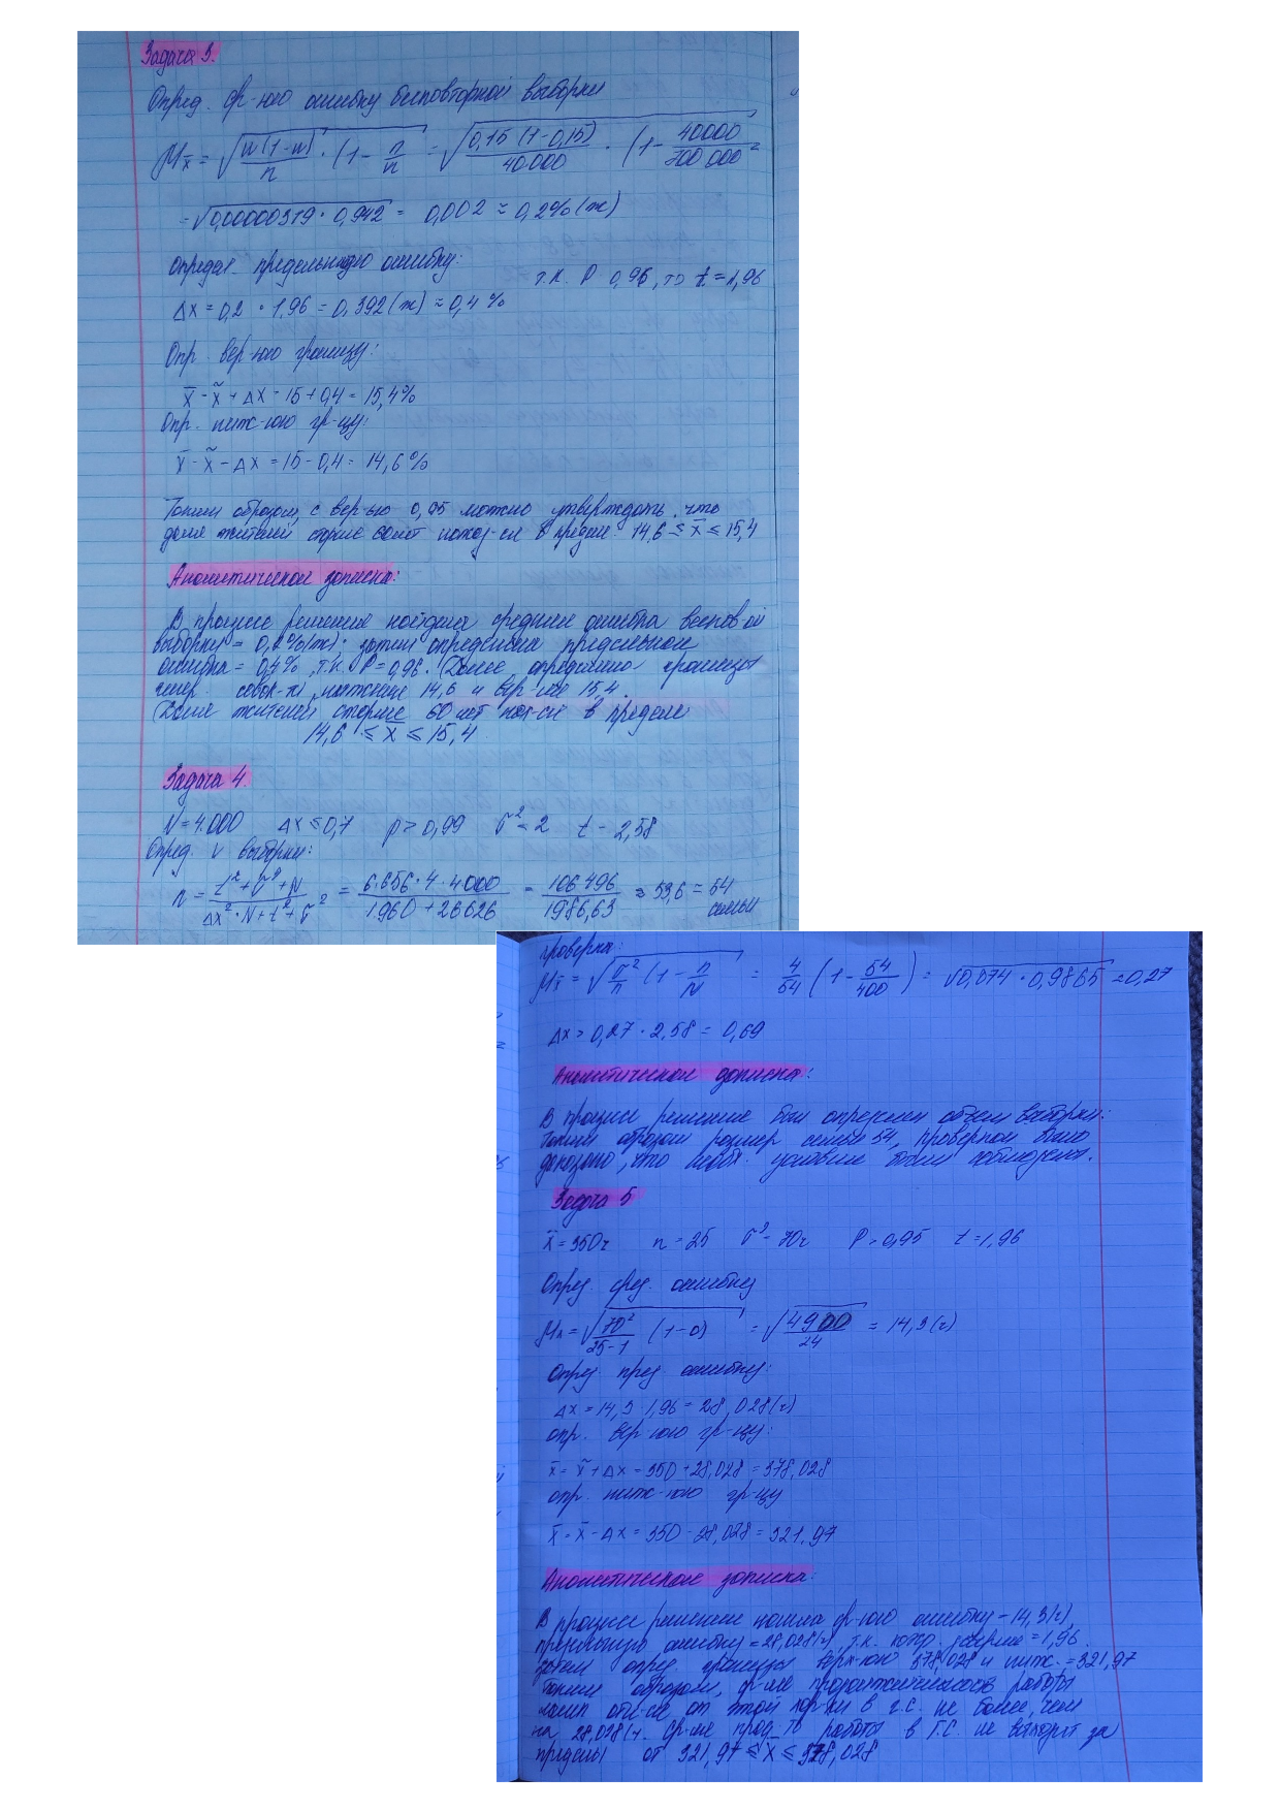 Задача 3.
Опред. ср-юю ошибку бесповторной выборки
μx̄ = √(w(1-w)/n · (1 - n/n = √(0,15(1-0,15)/40000 · (1 - 40000/700 000 =
= √0,00000319 · 0,942 = 0,002 ≈ 0,2% (ж)
Определ. предельную ошибку:
т.к. P 0,95, то t = 1,96
Δx = 0,2 · 1,96 = 0,392 (ж) ≈ 0,4 %
Опр. вер-юю границу:
x̄ = x̃ + Δx = 15 + 0,4 = 15,4%
Опр. ниж-юю гр-цу:
x̄ - x̃ - Δx = 15 - 0,4 = 14,6%
Таким образом, с вер-ью 0,95 можно утверждать, что
доля жителей старше 60 лет наход-ся в предел. 14,6 ≤ x̄ ≤ 15,4
Аналитическая записка:
В процессе решения найдена средняя ошибка
выборки = 0,2% (ж); затем определила предельная
ошибка = 0,4%, т.к. P = 0,96. Далее определила границы
генер. совок-ти нижнюю 14,6 и вер-юю 15,4.
Доля жителей старше 60 лет нах-ся в пределе
14,6 ≤ x̄ ≤ 15,4
Задача 4.
N = 4.000 Δx ≤ 0,7 p > 0,99 σ² = 2 t - 2,58
Опред. v выборки:
n = t² + σ² + N / Δx² · N + t² + σ² = 6.656 · 4 · 4000 / 1960 + 26626 = 106 496 / 1986,63 ≈ 53,6 = 54
семьи
проверка:
μx̄ = √(σ²/n (1 - n/N = 4/54 (1 - 54/400) = √0,074 · 0,9865 ≈ 0,27
Δx > 0,27 · 2,58 = 0,69
Аналитическая записка:
В процессе решения был определен объем выборки:
Таким образом размер семьи 54, проверкой было
доказано, что необх. условие были соблюдены.
Задача 5
x̃ = 350ч n = 25 σ² - 70ч P > 0,95 t = 1,96
Опред. сред. ошибку
μx = √(70²/25-1 (1-0) = √(4900/24 = 14,3 (ч)
Опред. пред. ошибку:
Δx = 14,3 1,96 = 28,028 (ч)
опр. вер-юю гр-цу:
x̄ = x̃ + Δx = 350 + 28,028 = 378,028
опр. ниж-юю гр-цу
x̄ = x̄ - Δx = 350 - 28,028 = 321,97
Аналитическая записка:
В процессе решения нашла ср-юю ошибку - 14,3 (ч),
предельную ошибку = 28,028 (ч), т.к. коэф. доверия = 1,96.
затем опред. границы верх-юю 378,028 и ниж. = 321,97
Таким образом, ср-яя продолжительность работы
ламп откл-ся от этой в г.с. не более, чем
на 28,028 (ч. Ср-яя прод-ть работы в Г.С. не выходит за
пределы от 321,97 ≤ x̄ ≤ 378,028